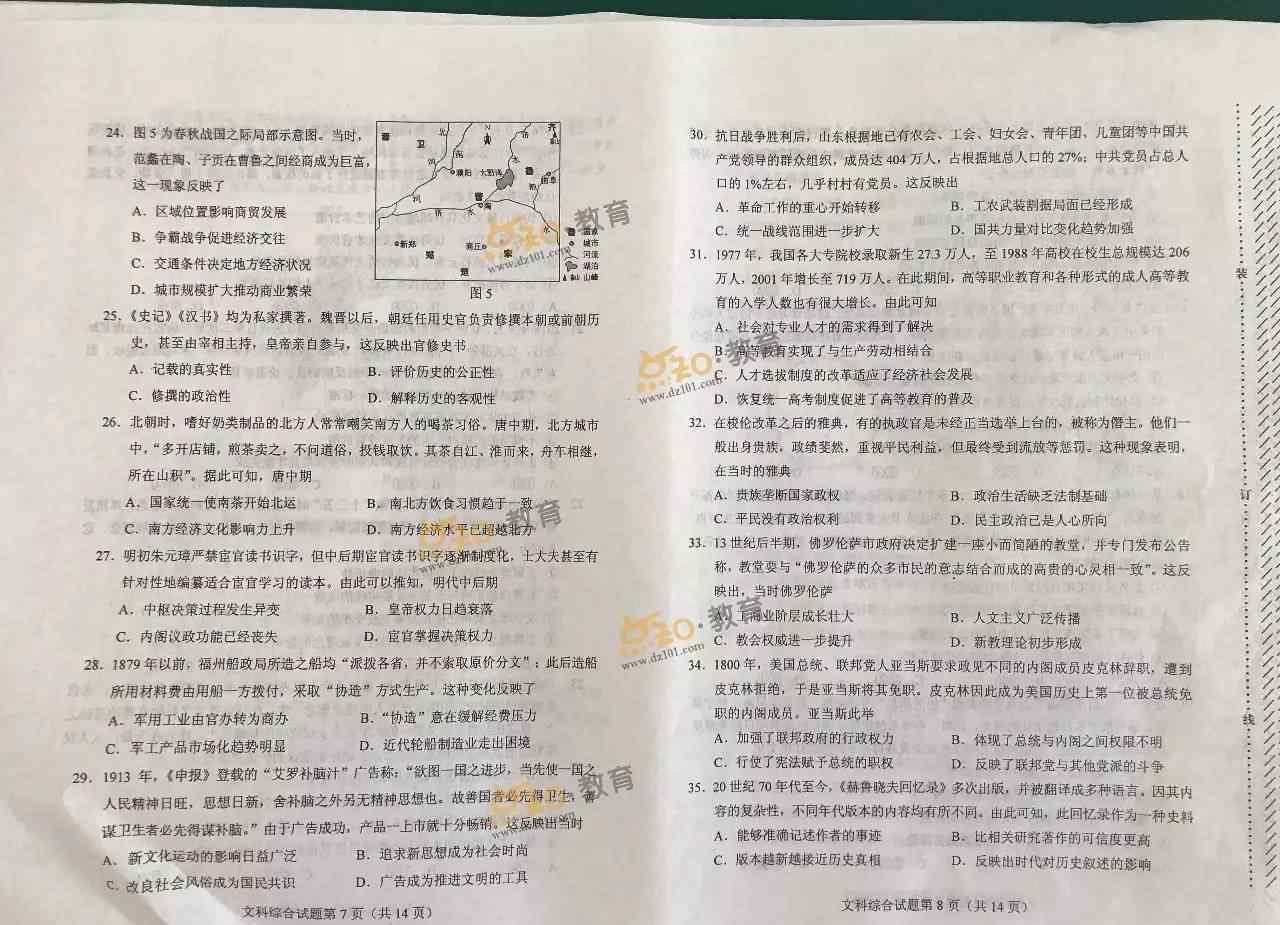 24．图 5 为春秋战国之际局部示意图。当时，
范蠡在陶、子贡在曹鲁之间经商成为巨富，
这一现象反映了
A．区域位置影响商贸发展
B．争霸战争促进经济交往
C．交通条件决定地方经济状况
D．城市规模扩大推动商业繁荣
卫
濮阳
大野泽
曲阜
陶
新郑
商丘
宋
楚
国家
城市
河流
湖泊
山峰
图 5
25．《史记》《汉书》均为私家撰著。魏晋以后，朝廷任用史官负责修撰本朝或前朝历
史，甚至由宰相主持，皇帝亲自参与，这反映出官修史书
A．记载的真实性
B．评价历史的公正性
C．修撰的政治性
D．解释历史的客观性
26．北朝时，嗜好奶类制品的北方人常常嘲笑南方人的喝茶习俗。唐中期，北方城市
中，“多开店铺，煎茶卖之，不问道俗，投钱取饮。其茶自江、淮而来，舟车相继，
所在山积”。据此可知，唐中期
A．国家统一使南茶开始北运
B．南北方饮食习惯趋于一致
C．南方经济文化影响力上升
D．南方经济水平已超越北方
27．明初朱元璋严禁宦官读书识字，但中后期宦官读书识字逐渐制度化，士大夫甚至有
针对性地编纂适合宦官学习的读本。由此可以推知，明代中后期
A．中枢决策过程发生异变
B．皇帝权力日趋衰落
C．内阁议政功能已经丧失
D．宦官掌握决策权力
28．1879 年以前，福州船政局所造之船均“派拨各省，并不索取原价分文”；此后造船
所用材料费由用船一方拨付，采取“协造”方式生产。这种变化反映了
A．军用工业由官办转为商办
B．“协造”意在缓解经费压力
C．军工产品市场化趋势明显
D．近代轮船制造业走出困境
29．1913 年，《申报》登载的“艾罗补脑汁”广告称：“欲图一国之进步，当先使一国之
人民精神日旺，思想日新，舍补脑之外另无精神思想也。故善国者必先得卫生，善
谋卫生者必先得谋补脑。”由于广告成功，产品一上市就十分畅销。这反映出当时
A．新文化运动的影响日益广泛
B．追求新思想成为社会时尚
C．改良社会风俗成为国民共识
D．广告成为推进文明的工具
文科综合试题第 7 页（共 14 页）
30．抗日战争胜利后，山东根据地已有农会、工会、妇女会、青年团、儿童团等中国共
产党领导的群众组织，成员达 404 万人，占根据地总人口的 27%；中共党员占总人
口的 1%左右，几乎村村有党员。这反映出
A．革命工作的重心开始转移
B．工农武装割据局面已经形成
C．统一战线范围进一步扩大
D．国共力量对比变化趋势加强
31．1977 年，我国各大专院校录取新生 27.3 万人，至 1988 年高校在校生总规模达 206
万人，2001 年增长至 719 万人。在此期间，高等职业教育和各种形式的成人高等教
育的入学人数也有很大增长。由此可知
A．社会对专业人才的需求得到了解决
B．高等教育实现了与生产劳动相结合
C．人才选拔制度的改革适应了经济社会发展
D．恢复统一高考制度促进了高等教育的普及
32．在梭伦改革之后的雅典，有的执政官是未经正当选举上台的，被称为僭主。他们一
般出身贵族，政绩斐然，重视平民利益，但最终受到流放等惩罚。这种现象表明，
在当时的雅典
A．贵族垄断国家政权
B．政治生活缺乏法制基础
C．平民没有政治权利
D．民主政治已是人心所向
33．13 世纪后半期，佛罗伦萨市政府决定扩建一座小而简陋的教堂，并专门发布公告
称，教堂要与“佛罗伦萨的众多市民的意志结合而成的高贵的心灵相一致”。这反
映出，当时佛罗伦萨
A．工商业阶层成长壮大
B．人文主义广泛传播
C．教会权威进一步提升
D．新教理论初步形成
34．1800 年，美国总统、联邦党人亚当斯要求政见不同的内阁成员皮克林辞职，遭到
皮克林拒绝，于是亚当斯将其免职。皮克林因此成为美国历史上第一位被总统免
职的内阁成员。亚当斯此举
A．加强了联邦政府的行政权力
B．体现了总统与内阁之间权限不明
C．行使了宪法赋予总统的职权
D．反映了联邦党与其他党派的斗争
35．20 世纪 70 年代至今，《赫鲁晓夫回忆录》多次出版，并被翻译成多种语言。因其内
容的复杂性，不同年代版本的内容均有所不同。由此可知，此回忆录作为一种史料
A．能够准确记述作者的事迹
B．比相关研究著作的可信度更高
C．版本越新越接近历史真相
D．反映出时代对历史叙述的影响
文科综合试题第 8 页（共 14 页）
装
订
线
点zo.教育
www.dz101.com
点zo.教育
www.dz101.com
点zo.教育
www.dz101.com
点zo.教育
www.dz101.com
点zo.教育
www.dz101.com